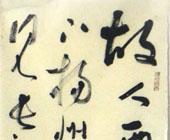 故人西
下揚州
見長